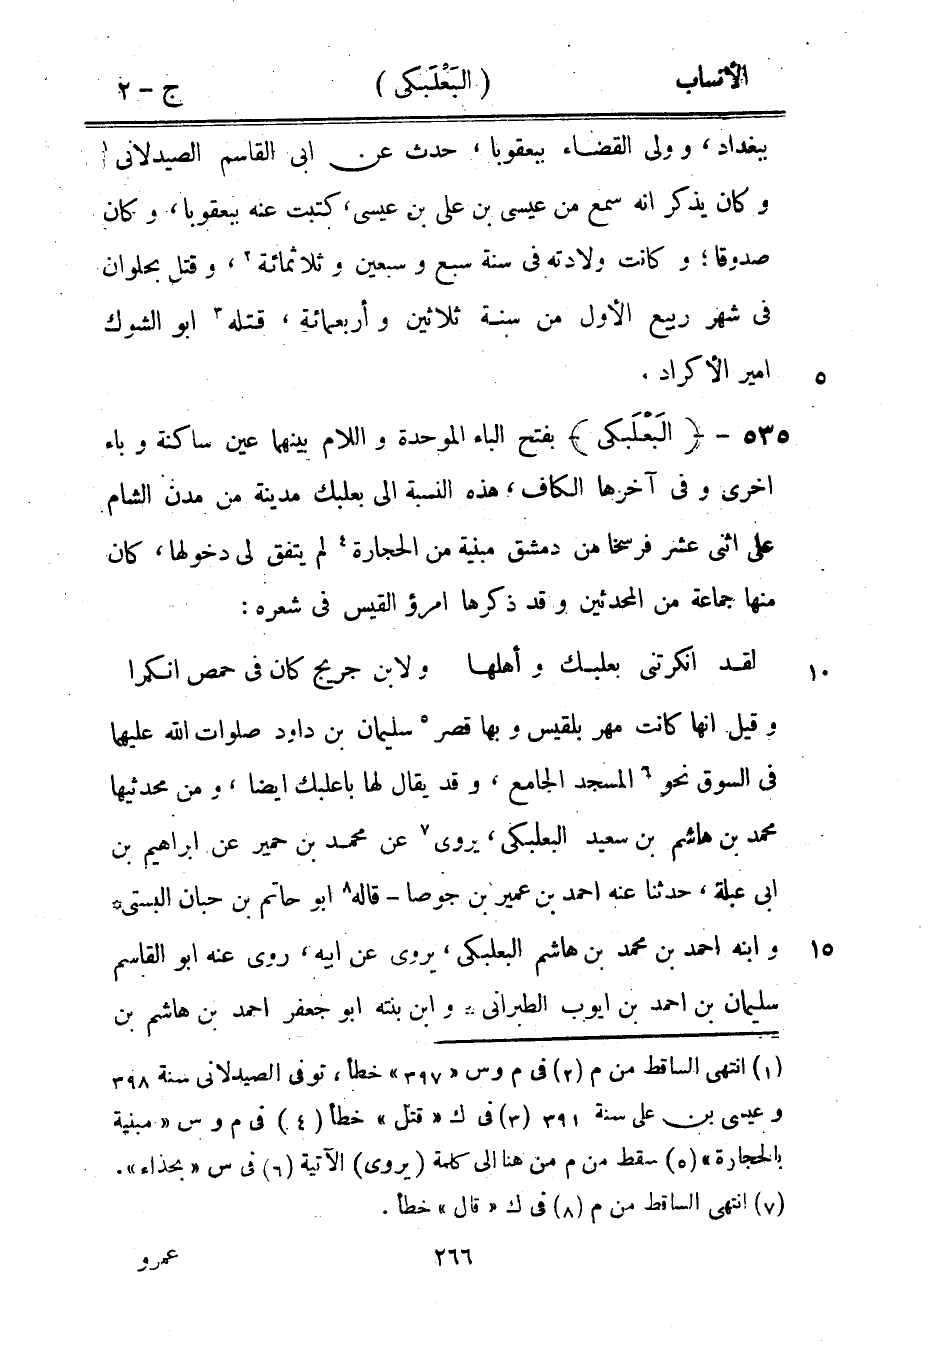 الأنساب ( البَعْلَبَكى ) ج – ٢
ببغداد، و ولى القضاء ببعقوبا، حدث عن ابى القاسم الصيدلانى ١
و كان يذكر انه سمع من عيسى بن على بن عيسى، كتبت عنه ببعقوبا، و كان
صدوقا؛ و كانت ولادته فى سنة سبع و سبعين و ثلاثمائة ٢، و قتل بحلوان
فى شهر ربيع الأول من سنة ثلاثين و أربعمائة، قتله ٣ ابو الشوك
امير الأكراد . ٥
٥٣٥ – ﴿ البَعْلَبَكى ﴾ بفتح الباء الموحدة و اللام بينهما عين ساكنة و باء
اخرى و فى آخرها الكاف، هذه النسبة الى بعلبك مدينة من مدن الشام
على اثنى عشر فرسخا من دمشق مبنية من الحجارة ٤ لم يتفق لى دخولها، كان
منها جماعة من المحدثين و قد ذكرها امرؤ القيس فى شعره :
لقد انكرتنى بعلبك و أهلها و لابن جريج كان فى حمص انكرا ١٠
و قيل انها كانت مهر بلقيس و بها قصر ٥ سليمان بن داود صلوات الله عليهما
فى السوق نحو ٦ المسجد الجامع، و قد يقال لها باعلبك ايضا، و من محدثيها
محمد بن هاشم بن سعيد البعلبكى، يروى ٧ عن محمد بن حمير عن ابراهيم بن
ابى عبلة، حدثنا عنه احمد بن عمير بن جوصا – قاله ٨ ابو حاتم بن حبان البستى *
و ابنه احمد بن محمد بن هاشم البعلبكى، يروى عن ابيه، روى عنه ابو القاسم ١٥
سليمان بن احمد بن ايوب الطبرانى * و ابن بنته ابو جعفر احمد بن هاشم بن
(١) انتهى الساقط من م (٢) فى م وس « ٣٩٧ » خطأ، توفى الصيدلانى سنة ٣٩٨
و عيسى بن على سنة ٣٩١ (٣) فى ك « قتل » خطأ (٤) فى م و س « مبنية
بالحجارة » (٥) سقط من م من هنا الى كلمة (يروى) الآتية (٦) فى س « بحذاء » .
(٧) انتهى الساقط من م (٨) فى ك « قال » خطأ .
٢٦٦ عمرو